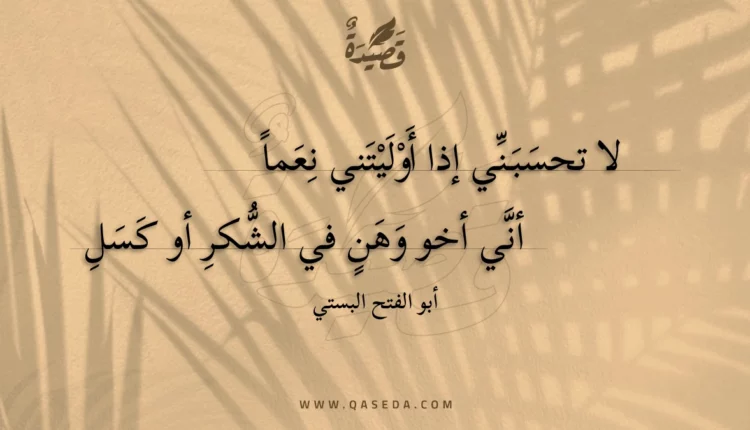 قَصِيْدَةٌ
لا تحسَبَنِّي إذا أَوْلَيْتَني نِعَماً
أنَّي أخو وَهَنٍ في الشُّكرِ أو كَسَلِ
أبو الفتح البستي
WWW.QASEDA.COM